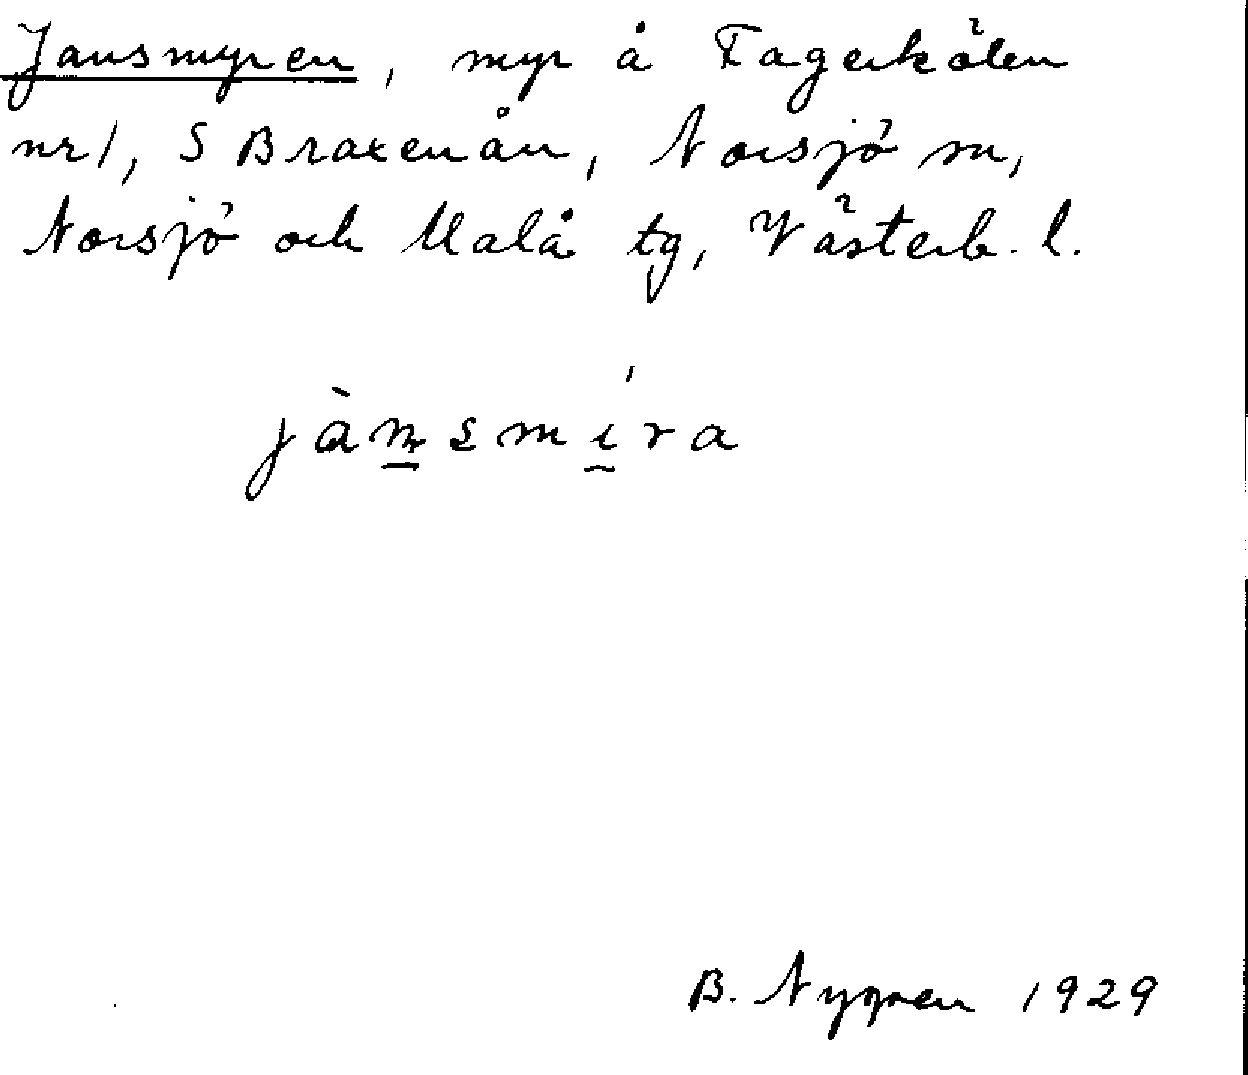 Jansmyren, myr å Fagerkölen
nr 1, S Braxenån, Norsjö sn,
Norsjö och Malå tg, Västerb. l.
jànsmíra
B. Nygren 1929